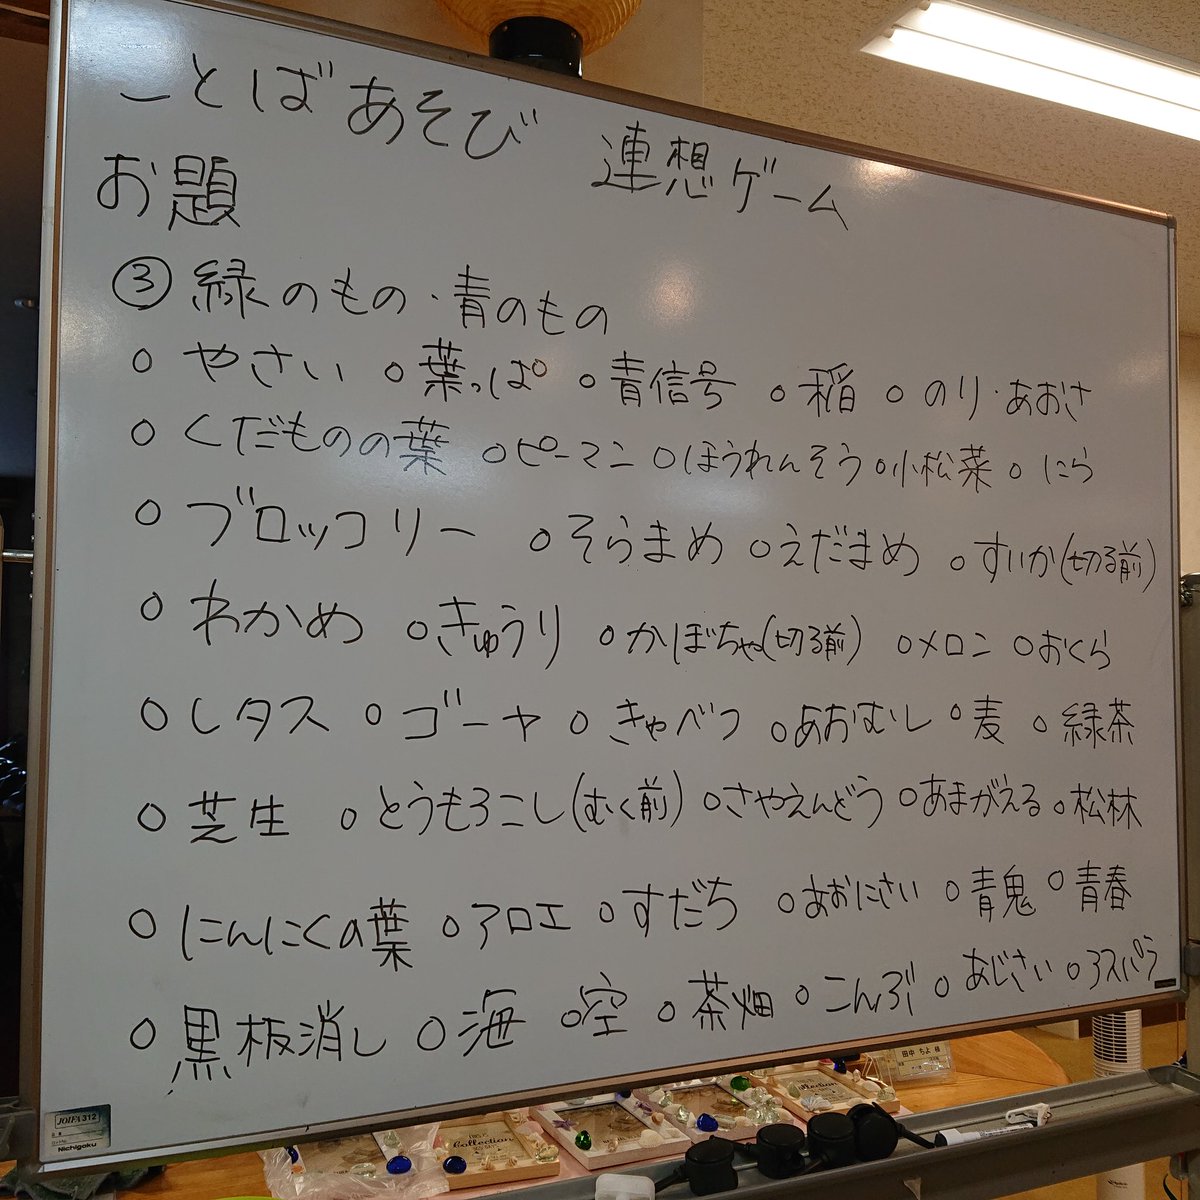 ことばあそび 連想ゲーム
お題
③緑のもの・青のもの
○やさい ○葉っぱ ○青信号 ○稲 ○のり・あおさ
○くだものの葉 ○ピーマン ○ほうれんそう ○小松菜 ○にら
○ブロッコリー ○そらまめ ○えだまめ ○すいか(切る前)
○わかめ ○きゅうり ○かぼちゃ(切る前) ○メロン ○おくら
○レタス ○ゴーヤ ○きゃべつ ○あおむし ○麦 ○緑茶
○芝生 ○とうもろこし(むく前) ○さやえんどう ○あまがえる ○松林
○にんにくの葉 ○アロエ ○すだち ○あおにさい ○青鬼 ○青春
○黒板消し ○海 ○空 ○茶畑 ○こんぶ ○あじさい ○アスパラ
JOIFA 312
Nichigaku
田中 ちよ 様
Collection